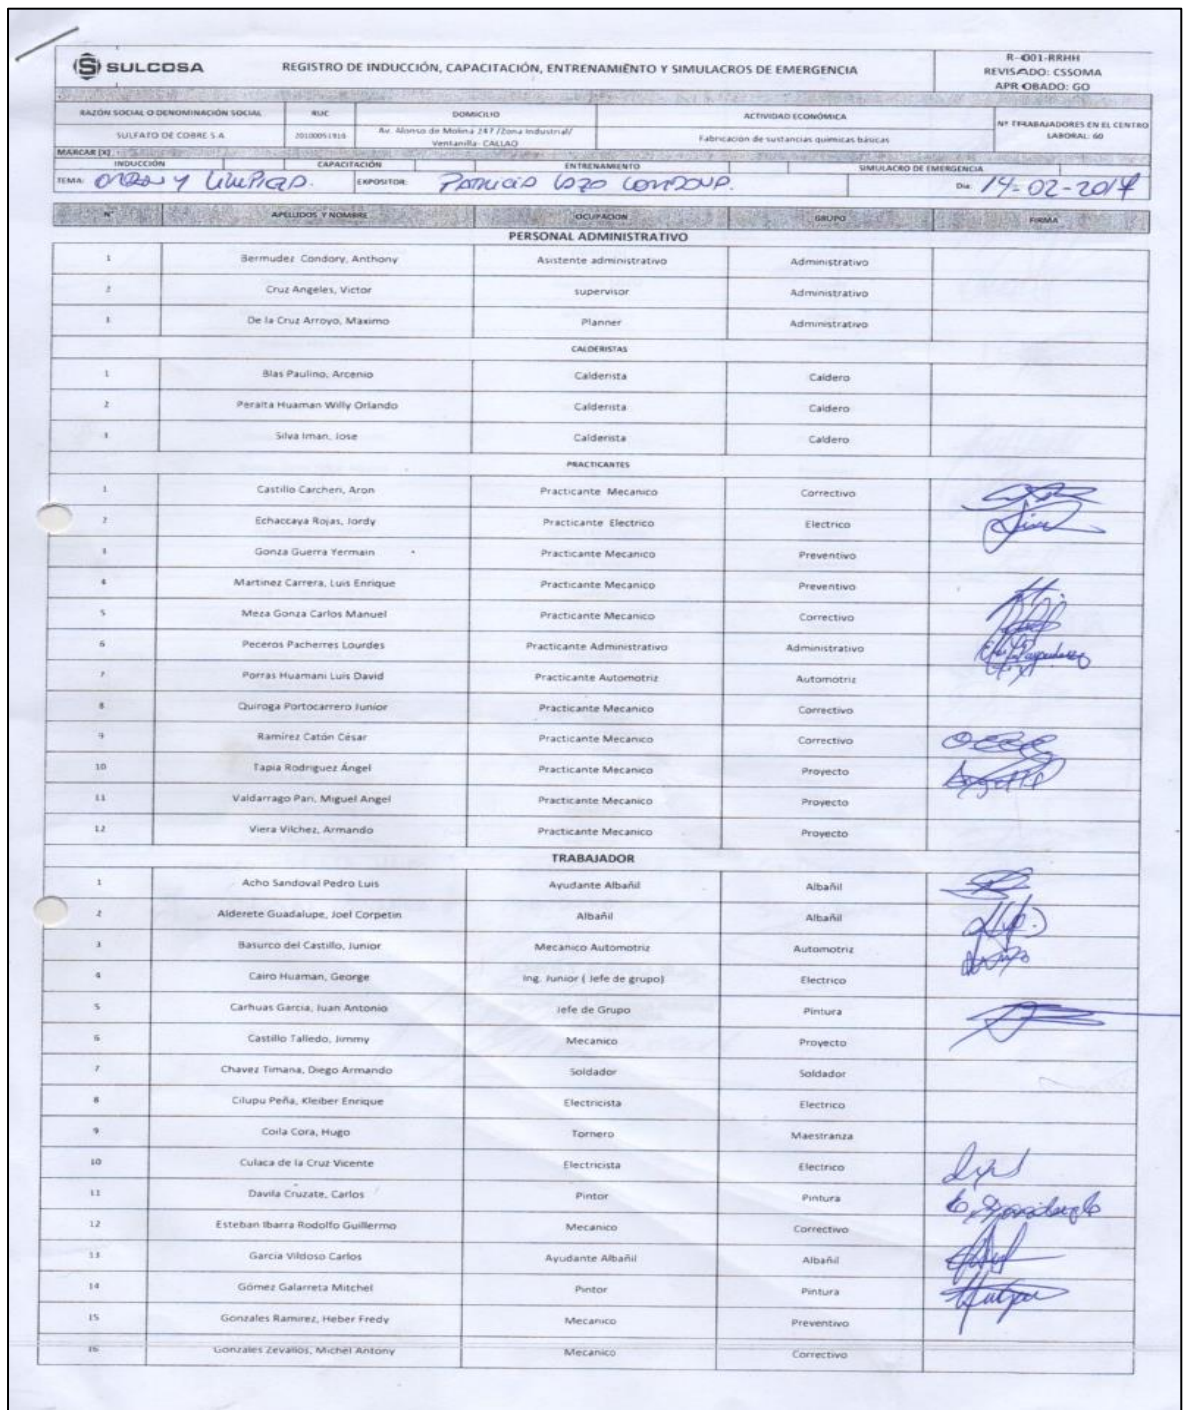 SULCOSA
REGISTRO DE INDUCCIÓN, CAPACITACIÓN, ENTRENAMIENTO Y SIMULACROS DE EMERGENCIA
R-001-RRHH
REVISADO: CSSOMA
APROBADO: GO
RAZÓN SOCIAL O DENOMINACIÓN SOCIAL RUC DOMICILIO ACTIVIDAD ECONÓMICA Nº TRABAJADORES EN EL CENTRO LABORAL: 60
SULFATO DE COBRE S.A. 20100051916 Av. Alonso de Molina 247 /Zona Industrial/ Ventanilla- CALLAO Fabricación de sustancias químicas básicas
MARCAR [X]
INDUCCIÓN CAPACITACIÓN ENTRENAMIENTO SIMULACRO DE EMERGENCIA
TEMA: Orden y Limpieza. EXPOSITOR: Patricia Lazo Día: 14-02-2017
Nº APELLIDOS Y NOMBRE OCUPACION GRUPO FIRMA
PERSONAL ADMINISTRATIVO
1 Bermudez Condory, Anthony Asistente administrativo Administrativo
2 Cruz Angeles, Victor supervisor Administrativo
3 De la Cruz Arroyo, Maximo Planner Administrativo
CALDERISTAS
1 Blas Paulino, Arcenio Calderista Caldero
2 Peralta Huaman Willy Orlando Calderista Caldero
3 Silva Iman, Jose Calderista Caldero
PRACTICANTES
1 Castillo Carchen, Aron Practicante Mecanico Correctivo
2 Echaccaya Rojas, Jordy Practicante Electrico Electrico
3 Gonza Guerra Yermain Practicante Mecanico Preventivo
4 Martinez Carrera, Luis Enrique Practicante Mecanico Preventivo
5 Meza Gonza Carlos Manuel Practicante Mecanico Correctivo
6 Peceros Pacherres Lourdes Practicante Administrativo Administrativo
7 Porras Huamani Luis David Practicante Automotriz Automotriz
8 Quiroga Portocarrero Junior Practicante Mecanico Correctivo
9 Ramírez Catón César Practicante Mecanico Correctivo
10 Tapia Rodriguez Ángel Practicante Mecanico Proyecto
11 Valdarrago Pari, Miguel Angel Practicante Mecanico Proyecto
12 Viera Vilchez, Armando Practicante Mecanico Proyecto
TRABAJADOR
1 Acho Sandoval Pedro Luis Ayudante Albañil Albañil
2 Alderete Guadalupe, Joel Corpetin Albañil Albañil
3 Basurco del Castillo, Junior Mecanico Automotriz Automotriz
4 Cairo Huaman, George Ing. Junior ( Jefe de grupo) Electrico
5 Carhuas Garcia, Juan Antonio Jefe de Grupo Pintura
6 Castillo Talledo, Jimmy Mecanico Proyecto
7 Chavez Timana, Diego Armando Soldador Soldador
8 Cilupu Peña, Kleiber Enrique Electricista Electrico
9 Coila Cora, Hugo Tornero Maestranza
10 Culaca de la Cruz Vicente Electricista Electrico
11 Davila Cruzate, Carlos Pintor Pintura
12 Esteban Ibarra Rodolfo Guillermo Mecanico Correctivo
13 Garcia Vildoso Carlos Ayudante Albañil Albañil
14 Gómez Galarreta Mitchel Pintor Pintura
15 Gonzales Ramirez, Heber Fredy Mecanico Preventivo
16 Gonzales Zevallos, Michel Antony Mecanico Correctivo